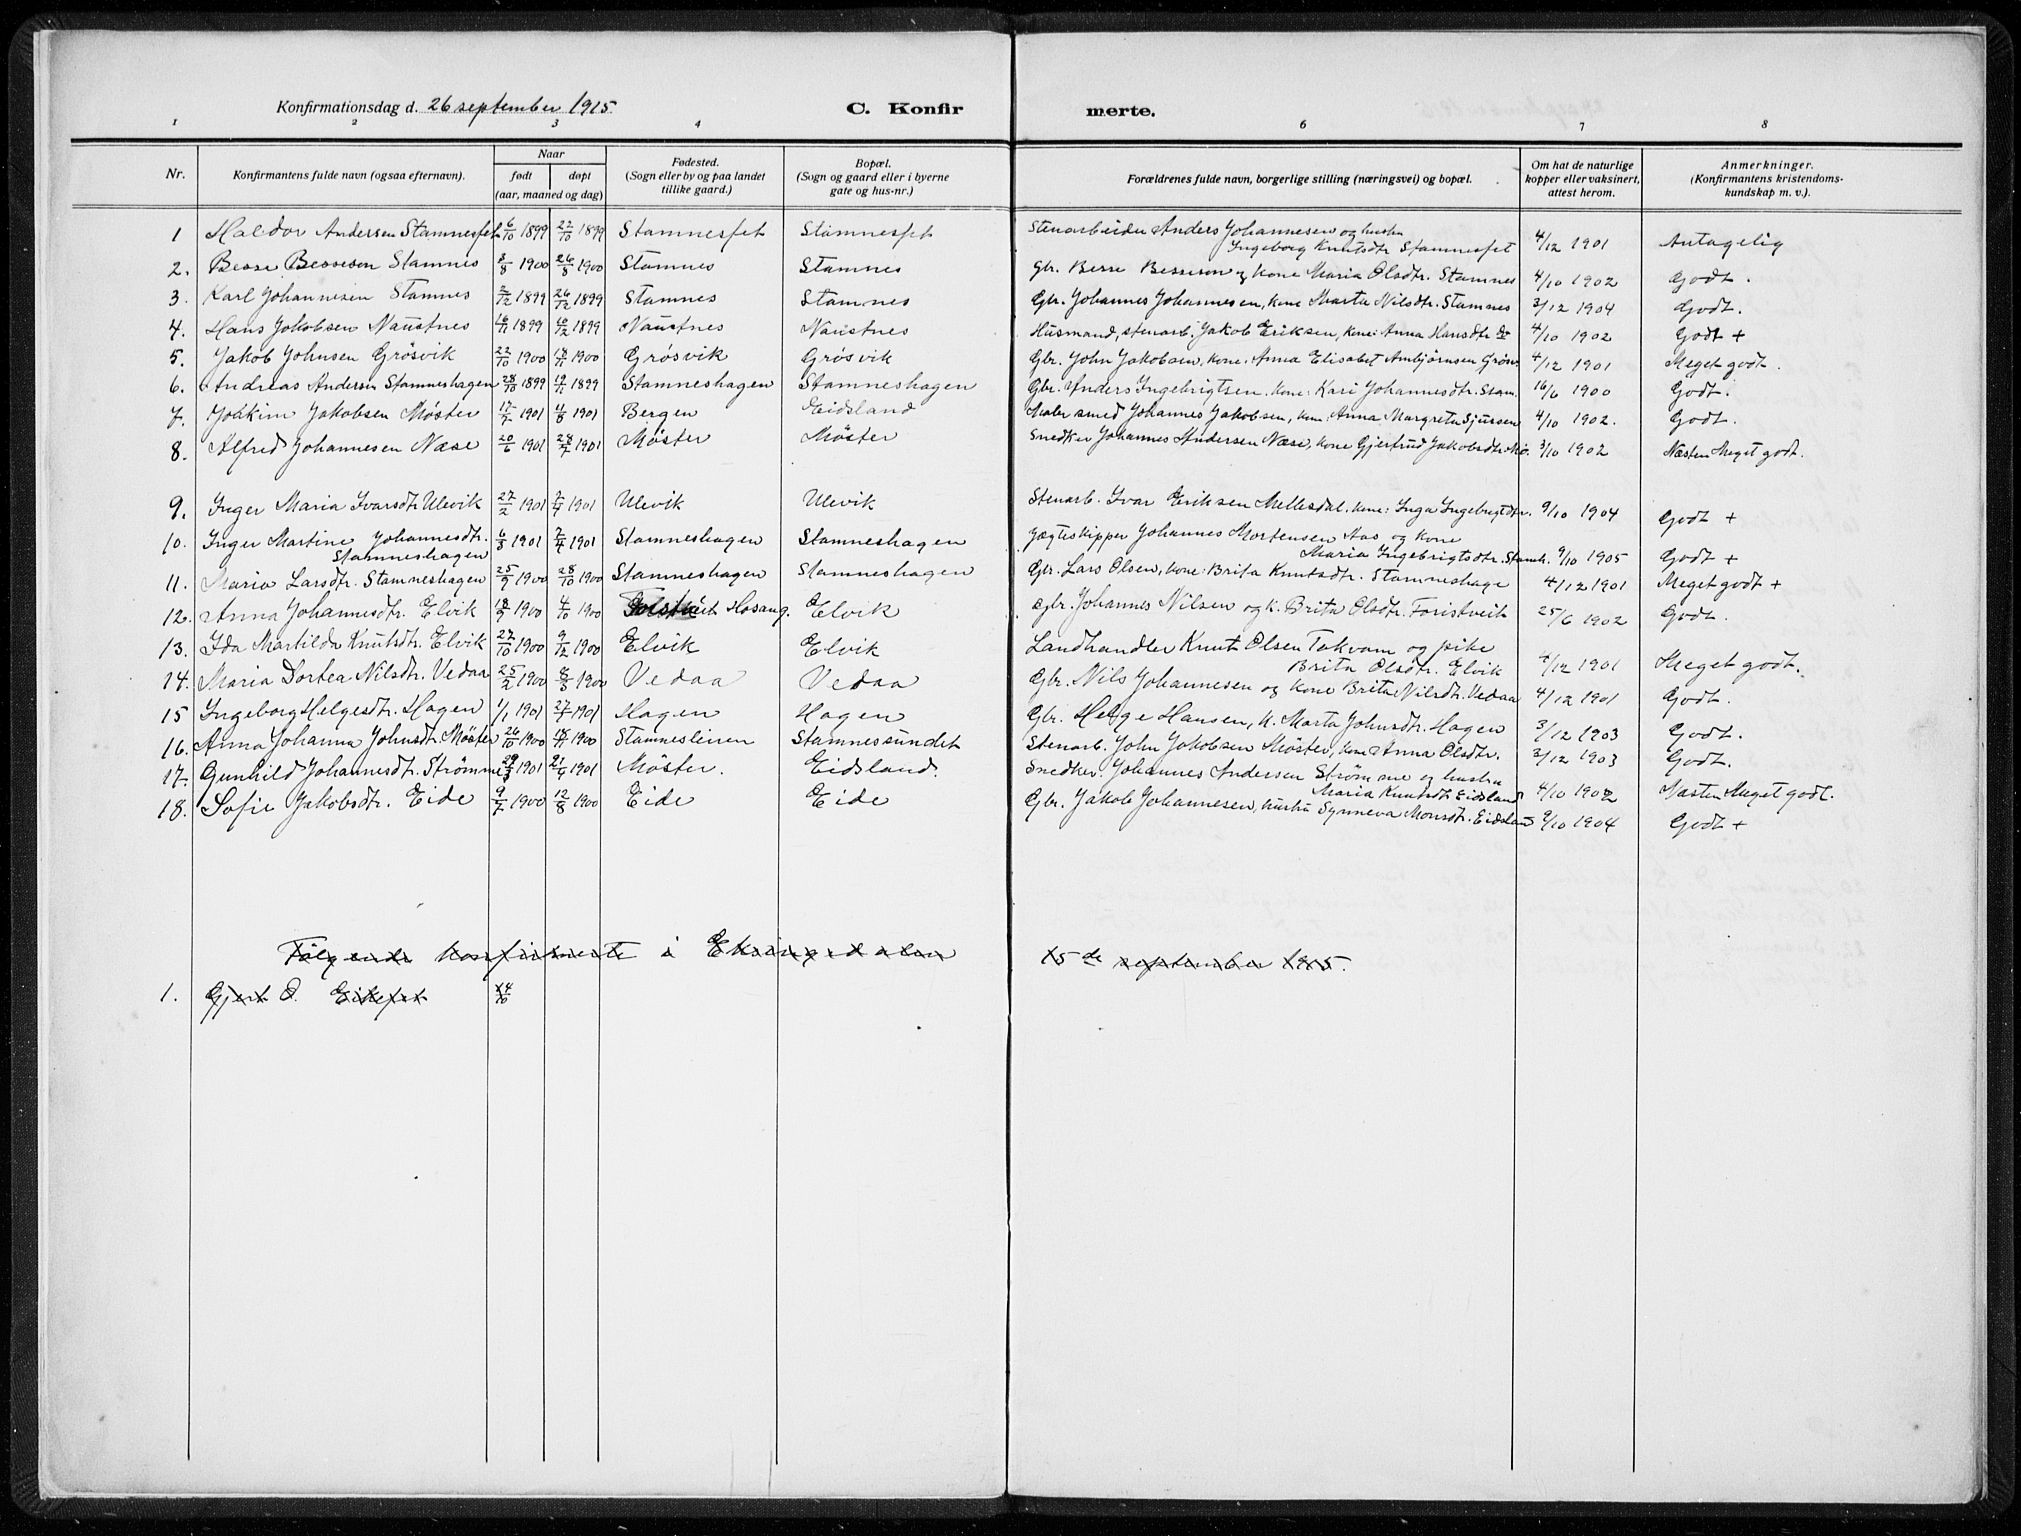 Konfirmationsdag d. 26 september 1915. C. Konfirmerte.
1 2 3 4 5 6 7 8
Nr. Konfirmantens fulde navn (ogsaa efternavn). Naar født døpt (aar, maaned og dag) Fødested. (Sogn eller by og paa landet tillike gaard.) Bopæl. (Sogn og gaard eller i byerne gate og hus-nr.) Forældrenes fulde navn, borgerlige stilling (næringsvei) og bopæl. Om hat de naturlige kopper eller vaksinert, attest herom. Anmerkninger. (Konfirmantens kristendomskundskap m. v.).
1 Haldor Andersen Stamnesfet 6/10 1899 22/10 1899 Stamnesfet Stamnesfet Stenarbeider Anders Johannesen og hustru
Ingeborg Knutsdtr Stamnesfet 4/12 1901 Antagelig
2. Besse Bessesen Stamnes 3/8 1900 26/8 1900 Stamnes Stamnes Gbr. Besse Bessesen og kone Maria Olsdtr. Stamnes 4/10 1902 Godt.
3. Karl Johannesen Stamnes 2/12 1899 26/12 1899 Stamnes Stamnes Gbr. Johannes Johannesen, kone Marta Nilsdtr. Stamnes 3/12 1904 Godt.
4. Hans Jakobsen Naustnes 16/11 1899 10/12 1899 Naustnes Naustnes Husmand, stenarb. Jakob Eriksen, kone: Anna Hansdtr do 4/10 1902 Godt +
5. Jakob Johnsen Grøsvik 22/10 1900 18/11 1900 Grøsvik Grøsvik Gbr. John Jakobsen, kone: Anna Elisabet Ambjørnsen Grøsv. 4/12 1901 Meget godt.
6. Andreas Andersen Stamneshagen 28/10 1899 19/11 1899 Stamneshagen Stamneshagen Gbr. Anders Ingebrigtsen. kone: Kari Johannesdtr. Stam. 16/6 1900 Godt.
7. Joakim Jakobsen Møster 17/7 1901 11/8 1901 Bergen Eidsland Maler smed Johannes Jakobsen, kone: Anna Margreta Sjursen 4/10 1902. Godt.
8. Alfred Johannesen Næse 20/6 1901 28/7 1901 Møster Møster Snedker Johannes Andersen Næse, kone Gjertrud Jakobsdtr. Mø. 3/10 1902 Næsten Meget godt.
9. Inger Maria Ivarsdtr Ulevik 27/2 1901 7/4 1901 Ulevik Ulevik Stenarb. Ivar Eriksen Mellesdal, kone: Inga Ingebrigtdtr. 9/10 1904 Godt +
10. Inger Martine Johannesdtr. 6/3 1901 7/4 1901 Stamneshagen Stamneshagen Jægteskipper Johannes Mortensen Aas og kone
Stamneshagen Maria Ingebrigtsdtr. Stamh. 9/10 1905 Godt +
11. Maria Larsdtr. Stamneshagen 25/9 1900 28/10 1900 Stamneshagen Stamneshagen Gbr. Lars Olsen, kone: Brita Knutsdtr. Stamneshage 4/12 1901 Meget godt +
12. Anna Johannesdtr. Elvik 18/9 1900 4/10 1900 Hosang. Elvik Gbr. Johannes Nilsen og k. Brita Olsdtr. Foristveit 25/6 1902 Godt.
13. Ida Martilda Knutsdtr. Elvik 27/10 1900 9/12 1900 Elvik Elvik Landhandler Knut Olsen Takvam og pike
Brita Olsdtr. Elvik 4/12 1901 Meget godt.
14. Maria Dortea Nilsdtr. Vedaa 25/2 1900 8/3 1900 Vedaa Vedaa Gbr. Nils Johannesen og kone Brita Nilsdtr. Vedaa 4/12 1901 Godt.
15 Ingeborg Helgesdtr. Hagen 1/1 1901 27/1 1901 Hagen Hagen Gbr. Helge Hansen, k. Marta Johnsdtr. Hagen 3/12 1903 Godt.
16. Anna Johanna Johnsdtr. Møster 26/10 1900 18/11 1900 Stamnesleiren Stamnessundet Stenarb. John Jakobsen Møster, kone Anna Olsdtr. 3/12 1903 Godt.
17. Gunhild Johannesdtr. Strømme 29/3 1901 21/4 1901 Møster. Eidsland. Snedker. Johannes Andersen Strømme og hustru
Maria Knutsdtr. Eidsland 4/10 1902 Næsten Meget godt.
18. Sofie Jakobsdtr. Eide 9/7 1900 12/8 1900 Eide Eide Gbr. Jakob Johannesen, hustru Synneva Monsdtr. Eidsland 9/10 1904 Godt +
Følgende konfirmerte i Eksingedalen 15de september 1915.
1. Gjert O. Eikefet 14/10